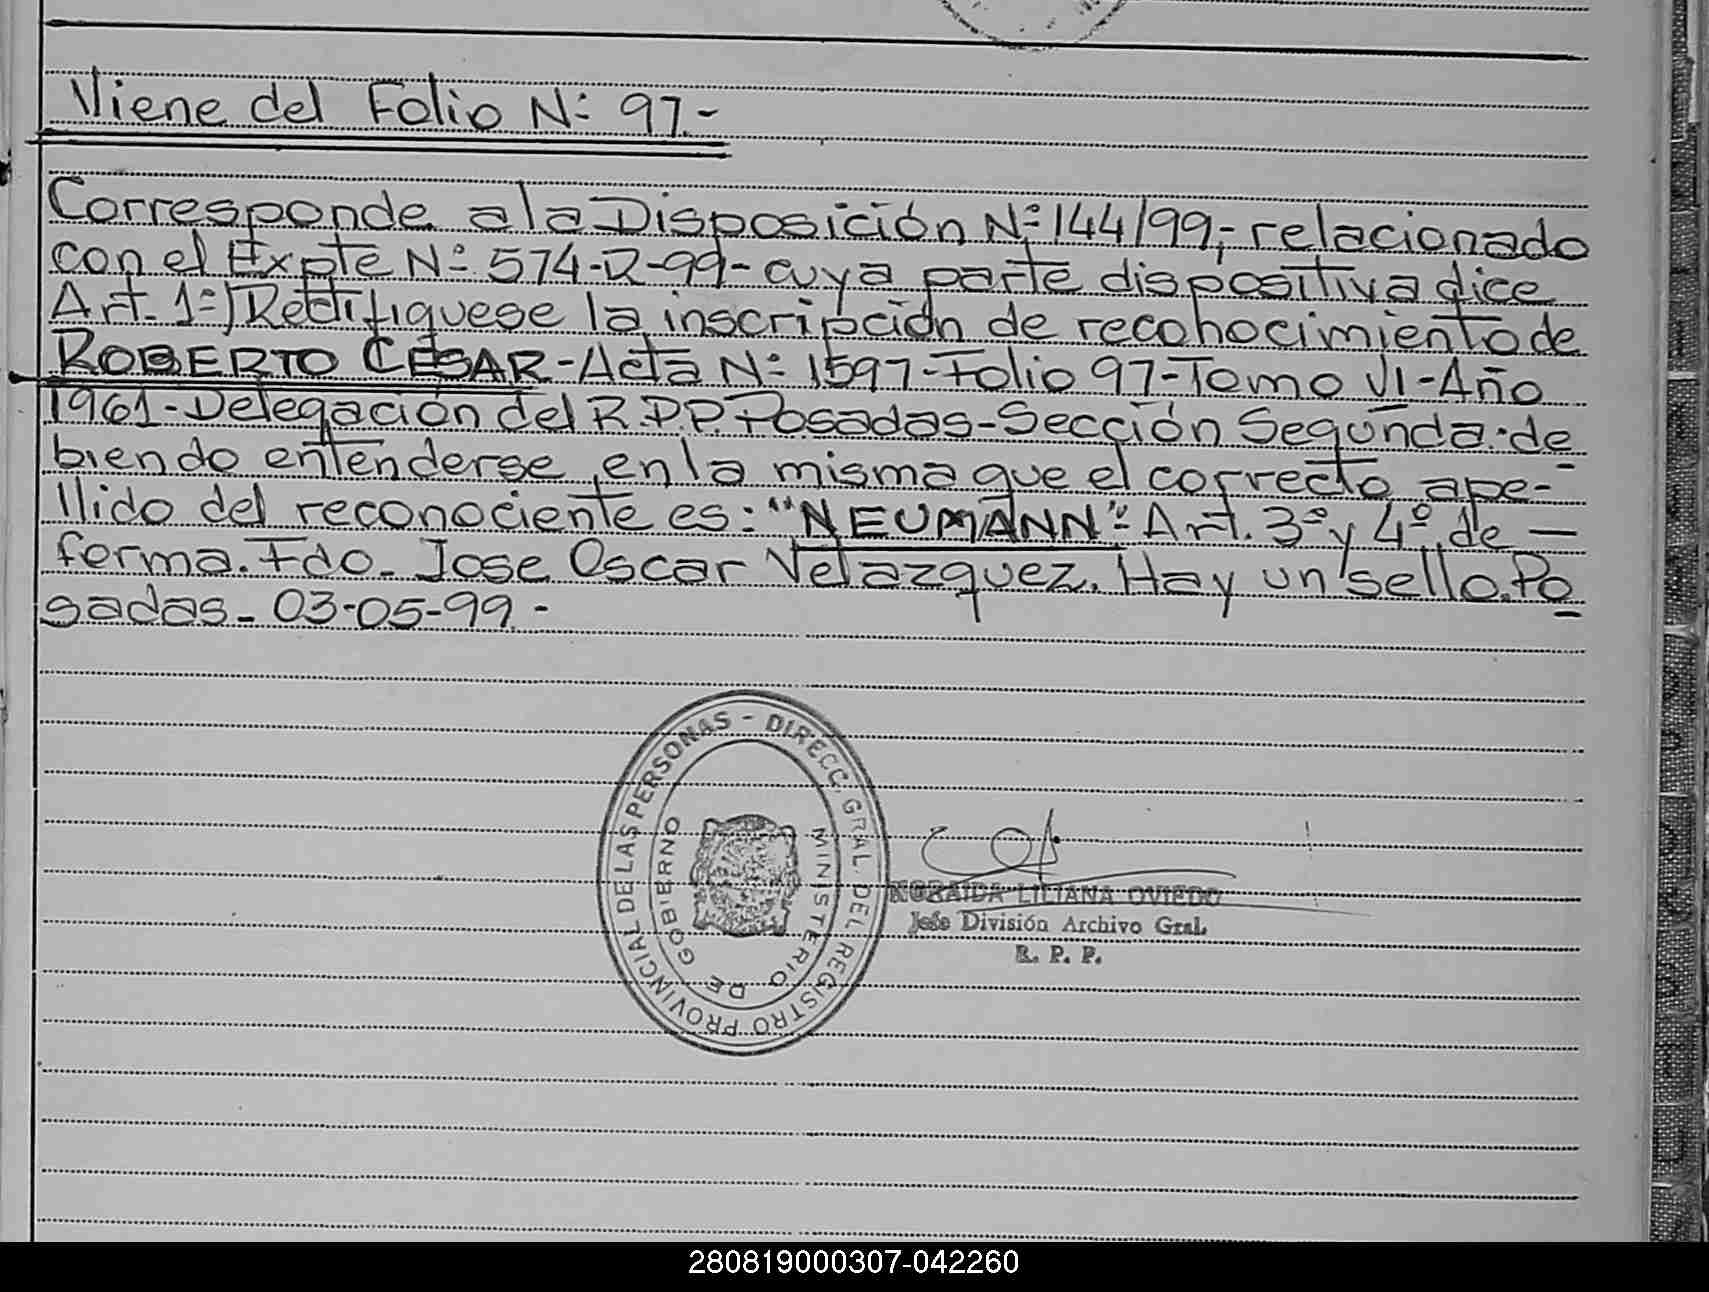 Viene del Folio Nº 97.-
Corresponde a la Disposición Nº 144/99,- relacionado
con el Expte Nº 574-R-99- cuya parte dispositiva dice
Art. 1º) Rectifiquese la inscripción de reconocimiento de
ROBERTO CESAR-Acta Nº 1597-Folio 97-Tomo VI-Año
1961-Delegación del R.P.P. Posadas-Sección Segunda. de
biendo entenderse en la misma que el correcto ape-
llido del reconociente es: "NEUMANN"- Art. 3º y 4º de —
forma. Fdo. Jose Oscar Velazquez. Hay un sello. Po
sadas- 03-05-99.-
DIRECC. GRAL. DEL REGISTRO PROVINCIAL DE LAS PERSONAS -
MINISTERIO DE GOBIERNO
LILIANA OVIEDO
Jefe División Archivo Gral.
R. P. P.
280819000307-042260